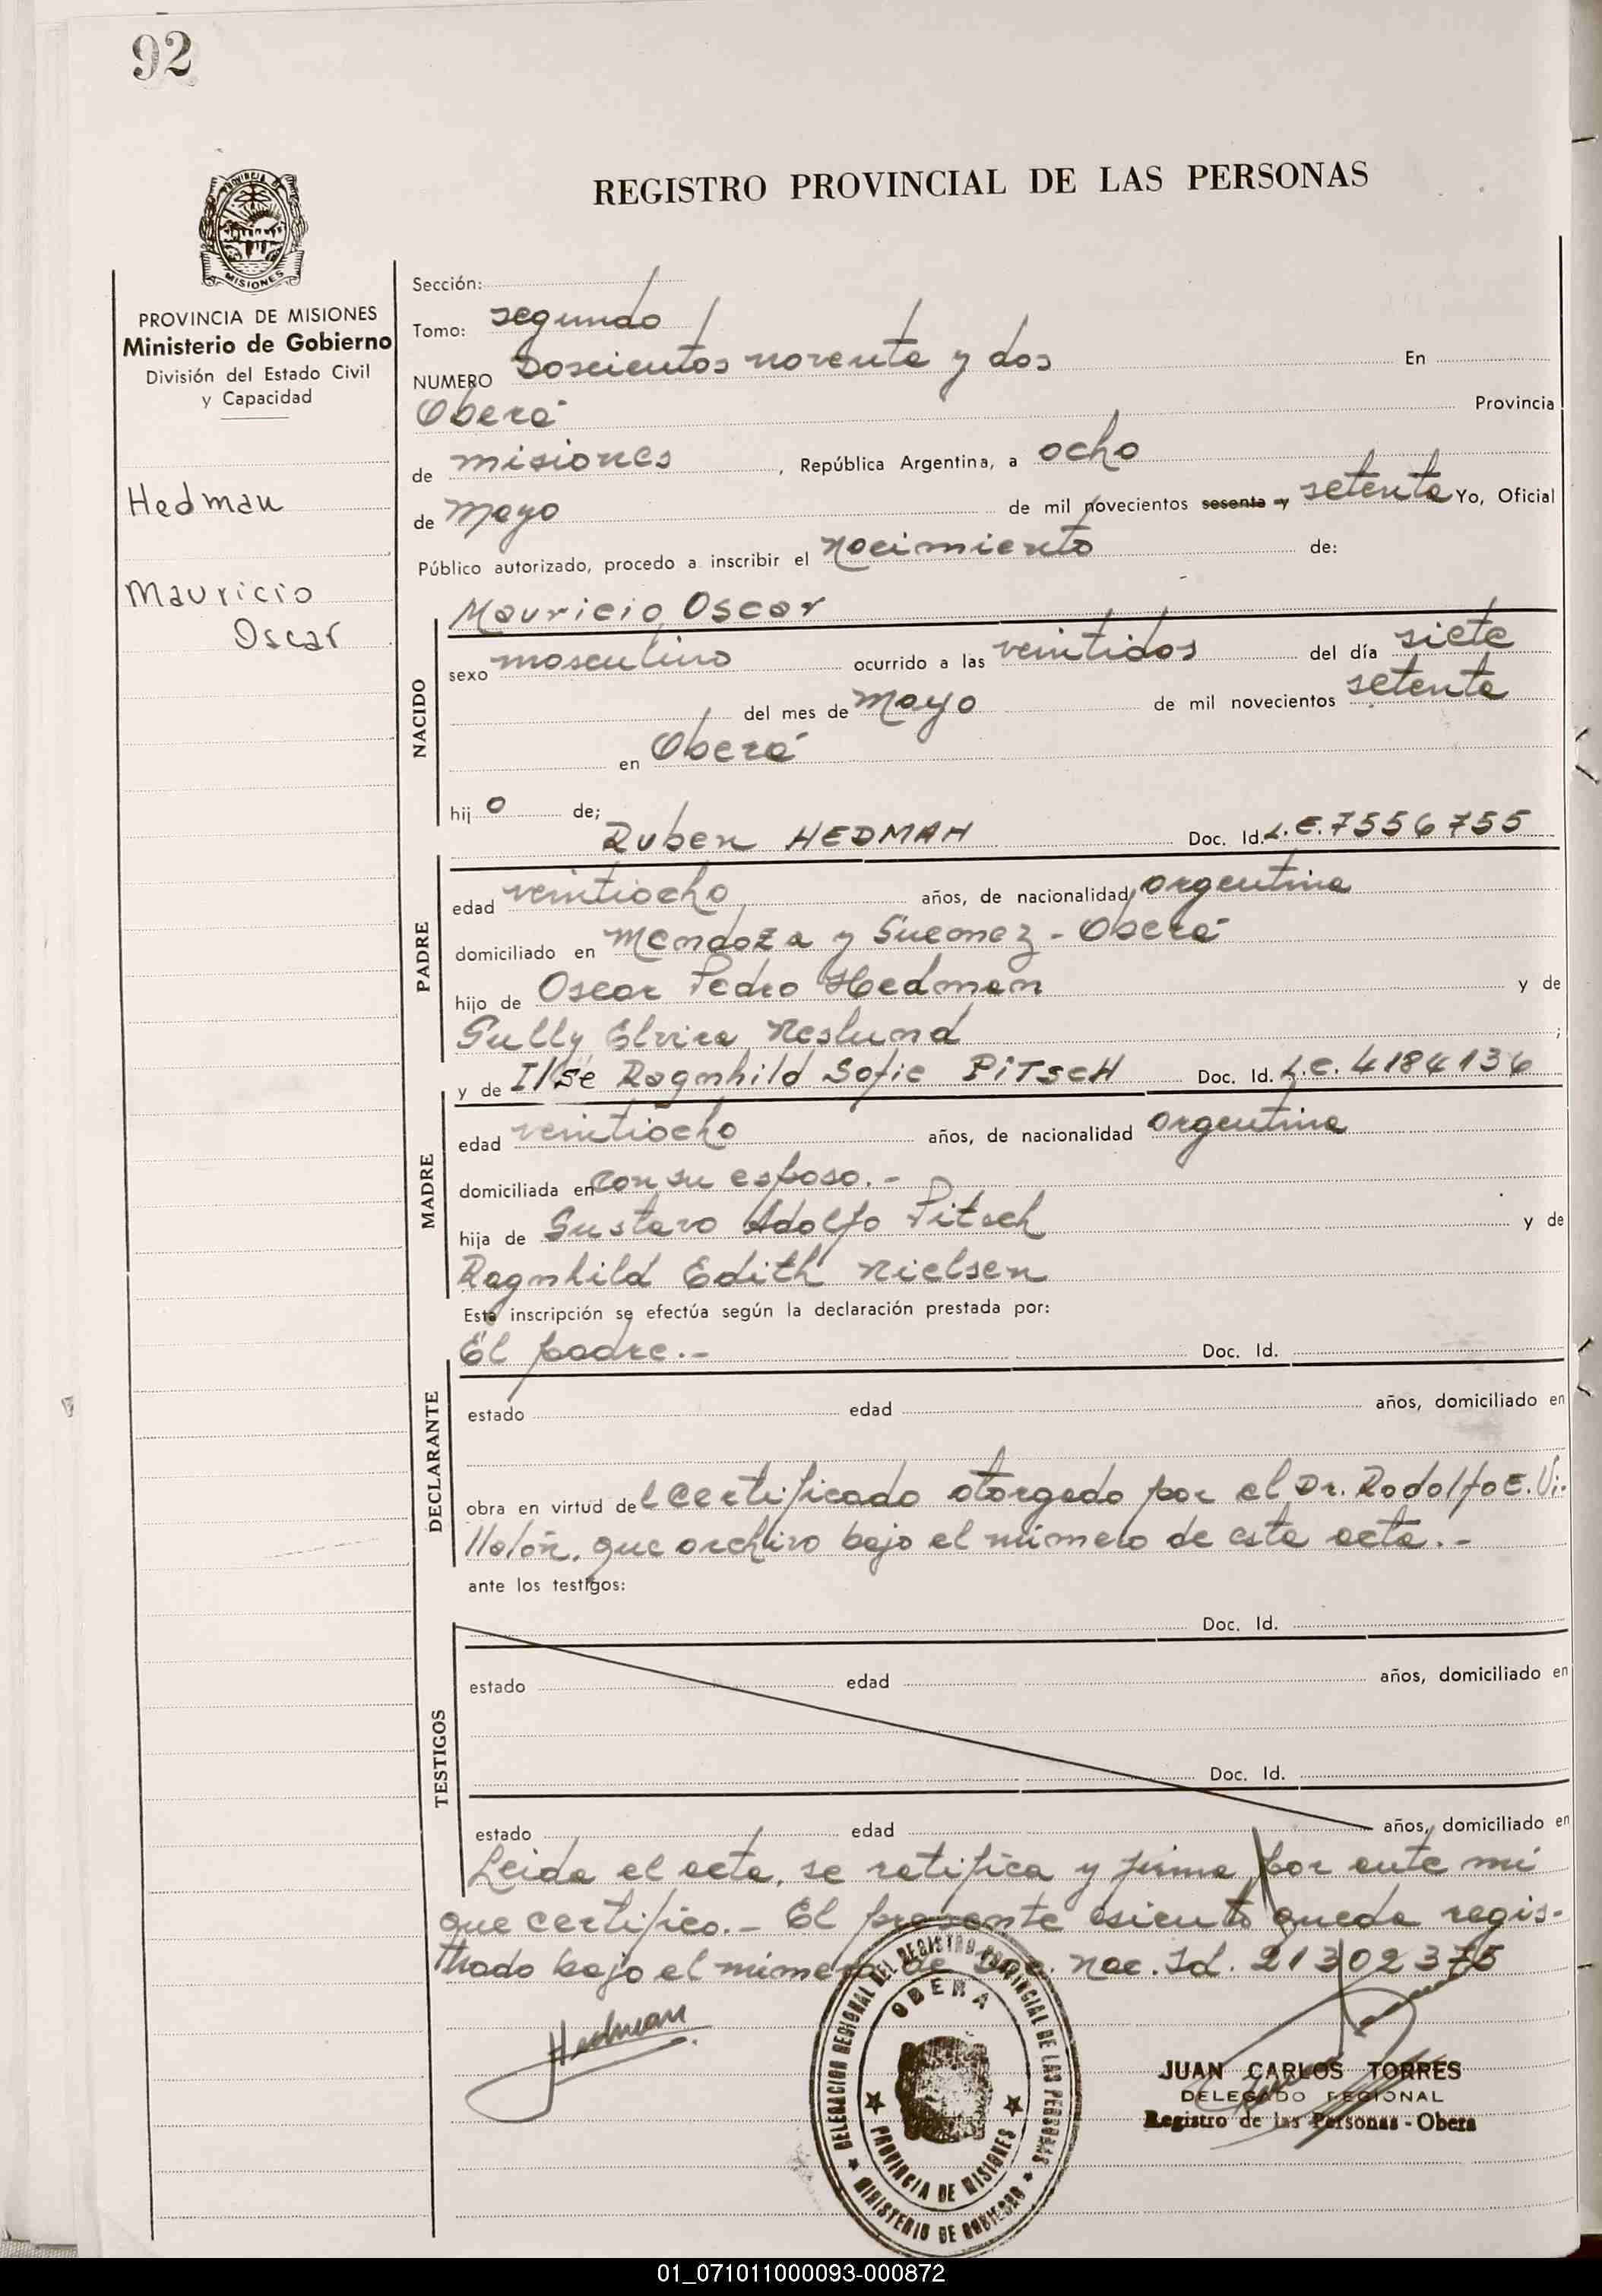 92
REGISTRO PROVINCIAL DE LAS PERSONAS
MISIONES
PROVINCIA DE MISIONES
Ministerio de Gobierno
División del Estado Civil
y Capacidad
Hedman
Mauricio
Oscar
Sección:
Tomo: segundo
NUMERO Doscientos noventa y dos En
Oberá Provincia
de misiones, República Argentina, a ocho
de mayo de mil novecientos sesenta y setenta Yo, Oficial
Público autorizado, procedo a inscribir el nacimiento de:
Mauricio Oscar
NACIDO
sexo masculino ocurrido a las veintidos del día siete
del mes de mayo de mil novecientos setenta
en Oberá
hij o de;
Ruben HEDMAN Doc. Id. L.E. 7556755
PADRE
edad veintiocho años, de nacionalidad argentina
domiciliado en Mendoza y - Oberá
hijo de Oscar Pedro Hedman y de
Elvira Neslund ;
y de Ilse Ragnhild Sofie PITSCH Doc. Id. L.C. 4184136
MADRE
edad veintiocho años, de nacionalidad argentina
domiciliada en con su esposo.-
hija de Gustavo Adolfo Pitsch y de
Ragnhild Edith Nielsen
Esta inscripción se efectúa según la declaración prestada por:
El padre.- Doc. Id.
DECLARANTE
estado edad años, domiciliado en
obra en virtud del certificado otorgado por el Dr. Rodolfo E. Vi-
llalón, que archivo bajo el número de esta acta.-
ante los testigos:
Doc. Id.
TESTIGOS
estado edad años, domiciliado en
Doc. Id.
estado edad años, domiciliado en
Leida el acta, se ratifica y firma por ante mi
que certifico.- El presente asiento queda regis-
trado bajo el número de Doc. Nac. Id. 21302375
Hedman
DELEGACION REGIONAL DEL REGISTRO PROVINCIAL DE LAS PERSONAS
OBERA
PROVINCIA DE MISIONES
MINISTERIO DE GOBIERNO
JUAN CARLOS TORRES
DELEGADO REGIONAL
Registro de las Personas - Obera
01_071011000093-000872